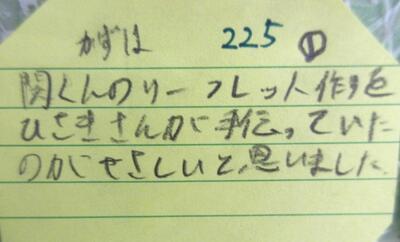 かずは 225 ①
関くんのリーフレット作りを
ひさきさんが手伝っていた
のがやさしいと思いました。